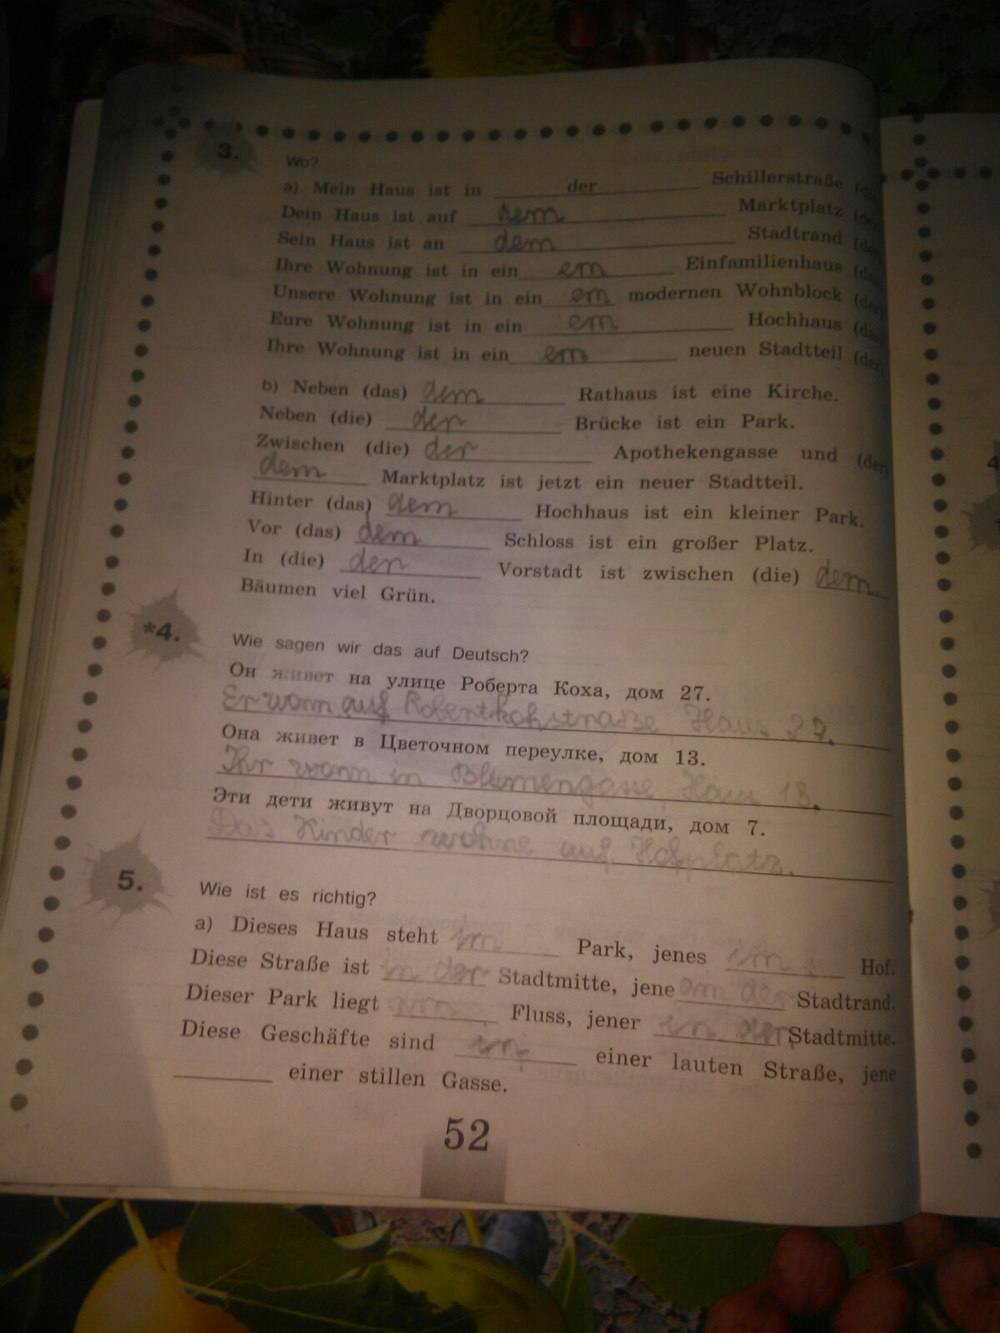 3.
Wo?
a) Mein Haus ist in der Schillerstraße
Dein Haus ist auf dem Marktplatz
Sein Haus ist an dem Stadtrand
Ihre Wohnung ist in ein em Einfamilienhaus
Unsere Wohnung ist in ein em modernen Wohnblock
Eure Wohnung ist in ein em Hochhaus
Ihre Wohnung ist in ein em neuen Stadtteil
b) Neben (das) dem Rathaus ist eine Kirche.
Neben (die) der Brücke ist ein Park.
Zwischen (die) der Apothekengasse und (der)
dem Marktplatz ist jetzt ein neuer Stadtteil.
Hinter (das) dem Hochhaus ist ein kleiner Park.
Vor (das) dem Schloss ist ein großer Platz.
In (die) der Vorstadt ist zwischen (die) dem
Bäumen viel Grün.
*4.
Wie sagen wir das auf Deutsch?
Он живет на улице Роберта Коха, дом 27.
Er wonn auf Haus 27.
Она живет в Цветочном переулке, дом 13.
Ihr wonn in Blumengasse, Haus 13.
Эти дети живут на Дворцовой площади, дом 7.
Das Kinder wohne auf Hofplatz.
5.
Wie ist es richtig?
a) Dieses Haus steht im Park, jenes im Hof.
Diese Straße ist in der Stadtmitte, jene am der Stadtrand.
Dieser Park liegt Fluss, jener in der Stadtmitte.
Diese Geschäfte sind in einer lauten Straße, jene
einer stillen Gasse.
52
4